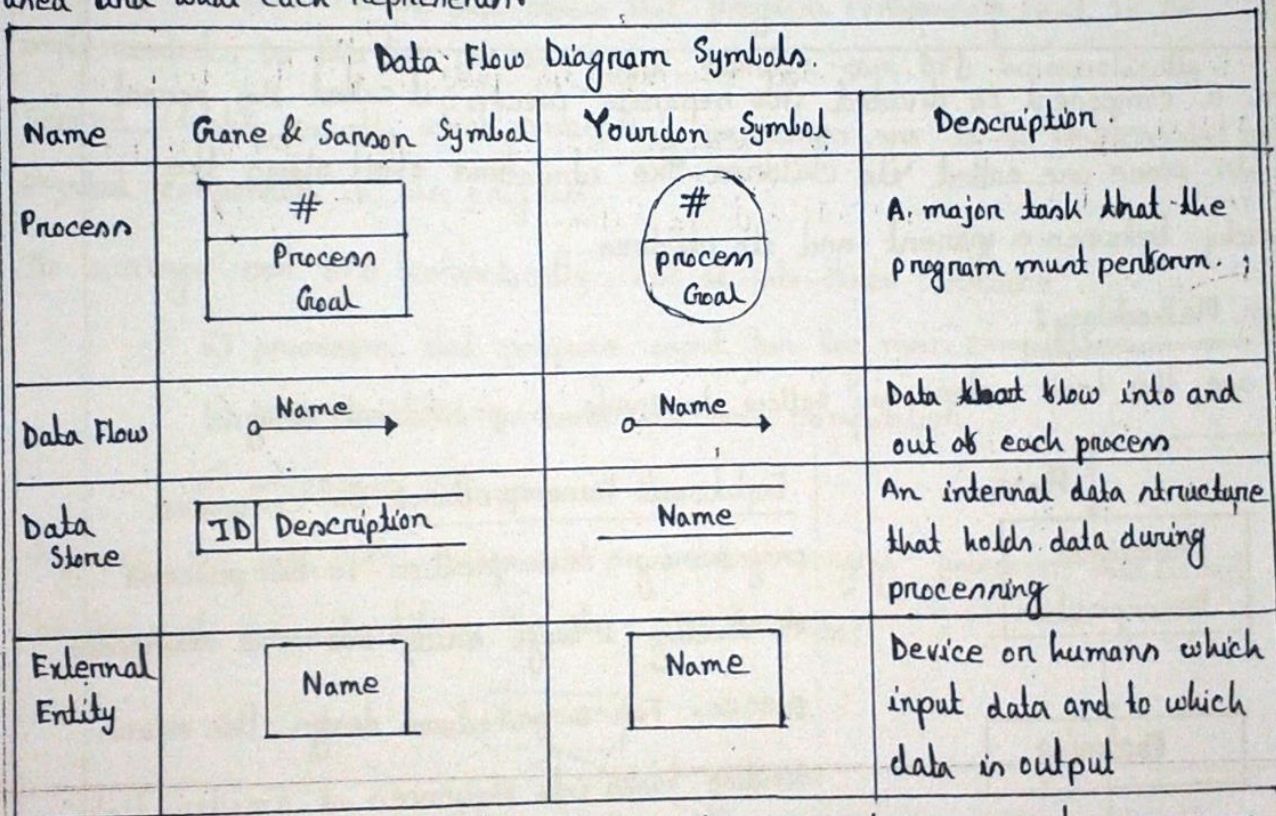 used and what each represents.
Data Flow Diagram Symbols.
Name Gane & Sarson Symbol Yourdon Symbol Description.
Process
#
Process
Goal
#
process
Goal
A. major task that the
program must perform. ;
Data Flow
Name
Name
Data that flow into and
out of each process
Data
Store
ID Description
Name
An internal data structure
that holds data during
processing
External
Entity
Name
Name
Device or humans which
input data and to which
data is output